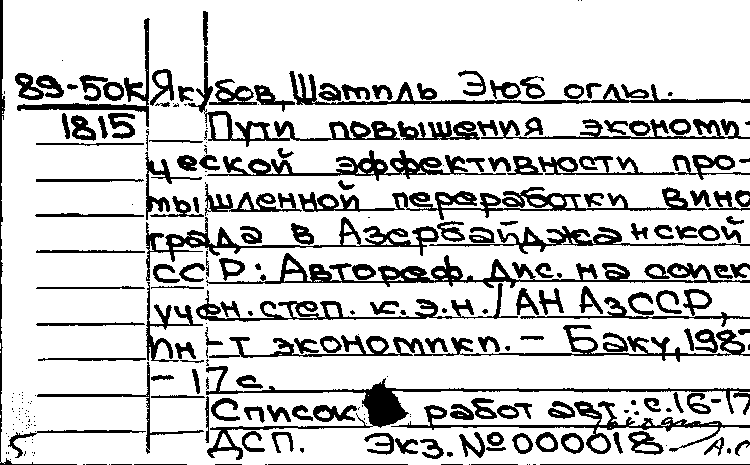 89-50к Якубов, Шамиль Эюб оглы.
1815 Пути повышения экономи-
ческой эффективности про-
мышленной переработки вино
града в Азербайджанской
ССР: Автореф. дис. на соиск
учен. степ. к. э. н. / АН АзССР,
Ин-т экономики. - Баку, 198
- 17 с.
Список работ авт.: с. 16-17
5 ДСП. Экз. № 000018